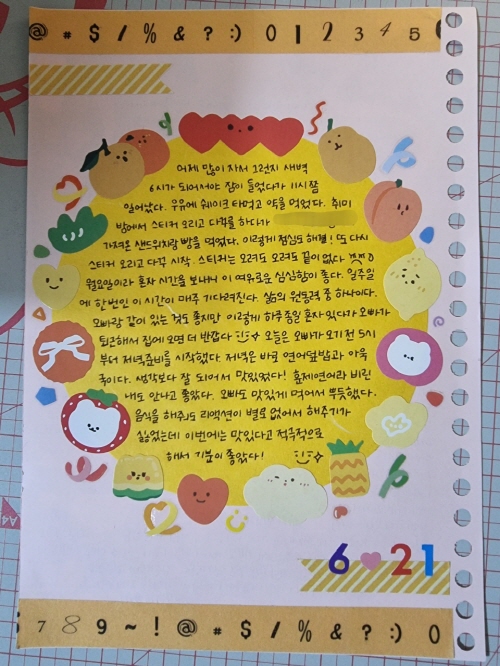 @ # $ / % & ? :) 0 1 2 3 4 5 6
어제 많이 자서 그런지 새벽
6시가 되어서야 잠이 들었다가 11시쯤
일어났다. 우유에 쉐이크 타먹고 약을 먹었다. 취미
방에서 스티커 오리고 다꾸를 하다가
가져온 샌드위치랑 빵을 먹었다. 이렇게 점심도 해결! 또 다시
스티커 오리고 다꾸 시작. 스티커는 오려도 오려도 끝이 없다
월요일이라 혼자 시간을 보내니 이 여유로운 심심함이 좋다. 일주일
에 한번인 이 시간이 매주 기다려진다. 삶의 원동력 중 하나이다.
오빠랑 같이 있는 것도 좋지만 이렇게 하루종일 혼자 있다가 오빠가
퇴근해서 집에 오면 더 반갑다 오늘은 오빠가 오기 전 5시
부터 저녁준비를 시작했다. 저녁은 바로 연어덮밥과 미역
국이다. 생각보다 잘 되어서 맛있었다! 훈제연어라 비린
내도 안나고 좋았다. 오빠도 맛있게 먹어서 뿌듯했다.
음식을 해줘도 리액션이 별로 없어서 해주기가
싫었는데 이번에는 맛있다고 적극적으로
해서 기분이 좋았다!
6 21
7 8 9 ~ ! @ # $ / % & ? :) 0
A4